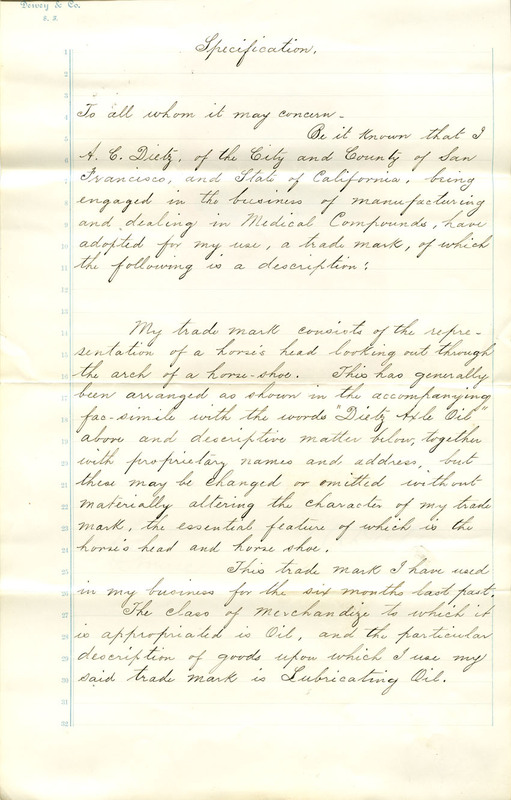 Dewey & Co.
S. F.
Specification.
To all whom it may concern -
Be it Known that I
A. C. Dietz, of the City and County of San
Francisco, and State of California, being
engaged in the business of manufacturing
and dealing in Medical Compounds, have
adopted for my use, a trade mark, of which
the following is a description:
My trade mark consists of the repre-
sentation of a horse's head looking out through
the arch of a horse-shoe. This has generally
been arranged as shown in the accompanying
fac-simile with the words "Dietz Axle Oil"
above and descriptive matter below, together
with proprietary names and address, but
these may be changed or omitted without
materially altering the character of my trade
mark, the essential feature of which is the
horse's head and horse shoe.
This trade mark I have used
in my business for the six months last past.
The class of merchandize to which it
is appropriated is Oil, and the particular
description of goods upon which I use my
said trade mark is Lubricating Oil.